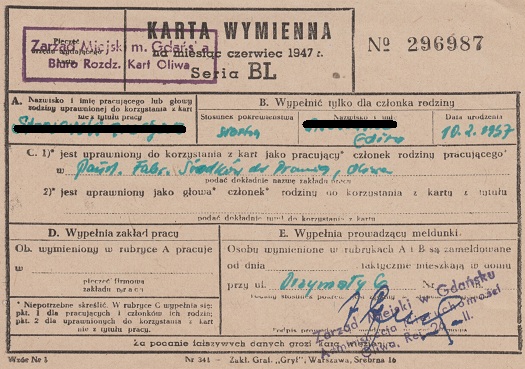 Pieczęć
urzędu wydającego
kartę
Zarząd Miejski m. Gdańska
Biuro Rozdz. Kart Oliwa
KARTA WYMIENNA
na miesiąc czerwiec 1947 r.
Seria BL
№ 296987
A. Nazwisko i imię pracującego lub głowy
rodziny uprawnionej do korzystania z kart
nie z tytułu pracy
B. Wypełnić tylko dla członka rodziny
Stosunek pokrewieństwa
Nazwisko i imię
Edira
Data urodzenia
10.2.1937
C. 1)* jest uprawniony do korzystania z kart jako pracujący* członek rodziny pracującego*
w Państ. Fabr. Środków do Prania, Oliwa
podać dokładnie nazwę zakładu pracy
2)* jest uprawniony jako głowa* członek* rodziny do korzystania z karty z tytułu
podać dokładnie tytuł do korzystania z karty
D. Wypełnia zakład pracy
Ob. wymieniony w rubryce A pracuje
w
pieczęć firmowa
zakładu pracy
* Niepotrzebne skreślić. W rubryce C wypełnia się:
pkt. 1 dla pracujących i członków ich rodzin;
pkt. 2 dla uprawnionych do korzystania z kart
nie z tytułu pracy.
E. Wypełnia prowadzący meldunki.
Osoby wymienione w rubrykach A i B są zameldowane
od dnia faktycznie mieszkają w domu
przy ul. Drzymały 6 Nr
Podpis
Zarząd Miejski w Gdańsku
Administracja Nieruchomości
Oliwa, Rej. 20-II.
Za podanie fałszywych danych grozi kara więzienia
Wzór Nr 1
Nr 341 - Zakł. Graf. „Gryf", Warszawa, Srebrna 16